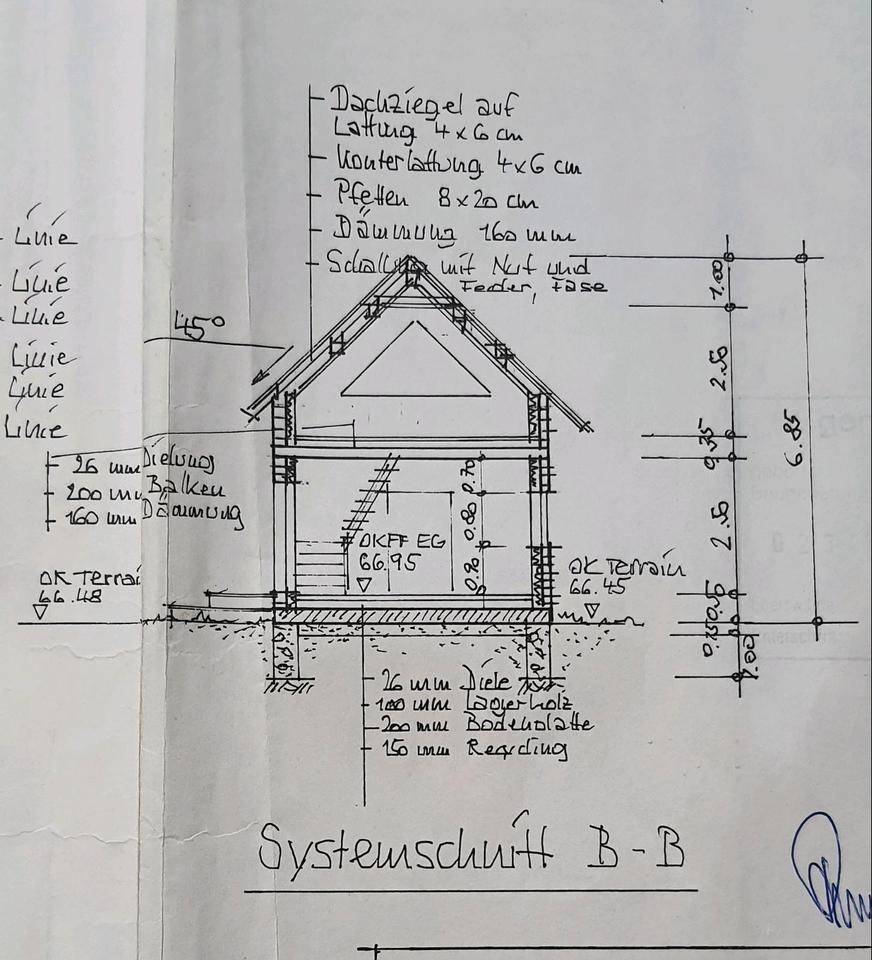 Dachziegel auf
Lattung 4 x 6 cm
Konterlattung 4 x 6 cm
Pfetten 8 x 20 cm
Dämmung 160 mm
Schalung mit Nut und
Feder, Fase
Linie
Linie
Linie
Linie
Linie
Linie
45°
26 mm Dielung
200 mm Balken
160 mm Dämmung
OK Terrai
66.48
OKFF EG
66.95
OK Terrain
66.45
0.70
0.80
0.90
1.00
2.50
2.50
1.00
6.85
26 mm Diele
100 mm Lagerholz
200 mm Bodenplatte
150 mm Recycling
Systemschnitt B-B